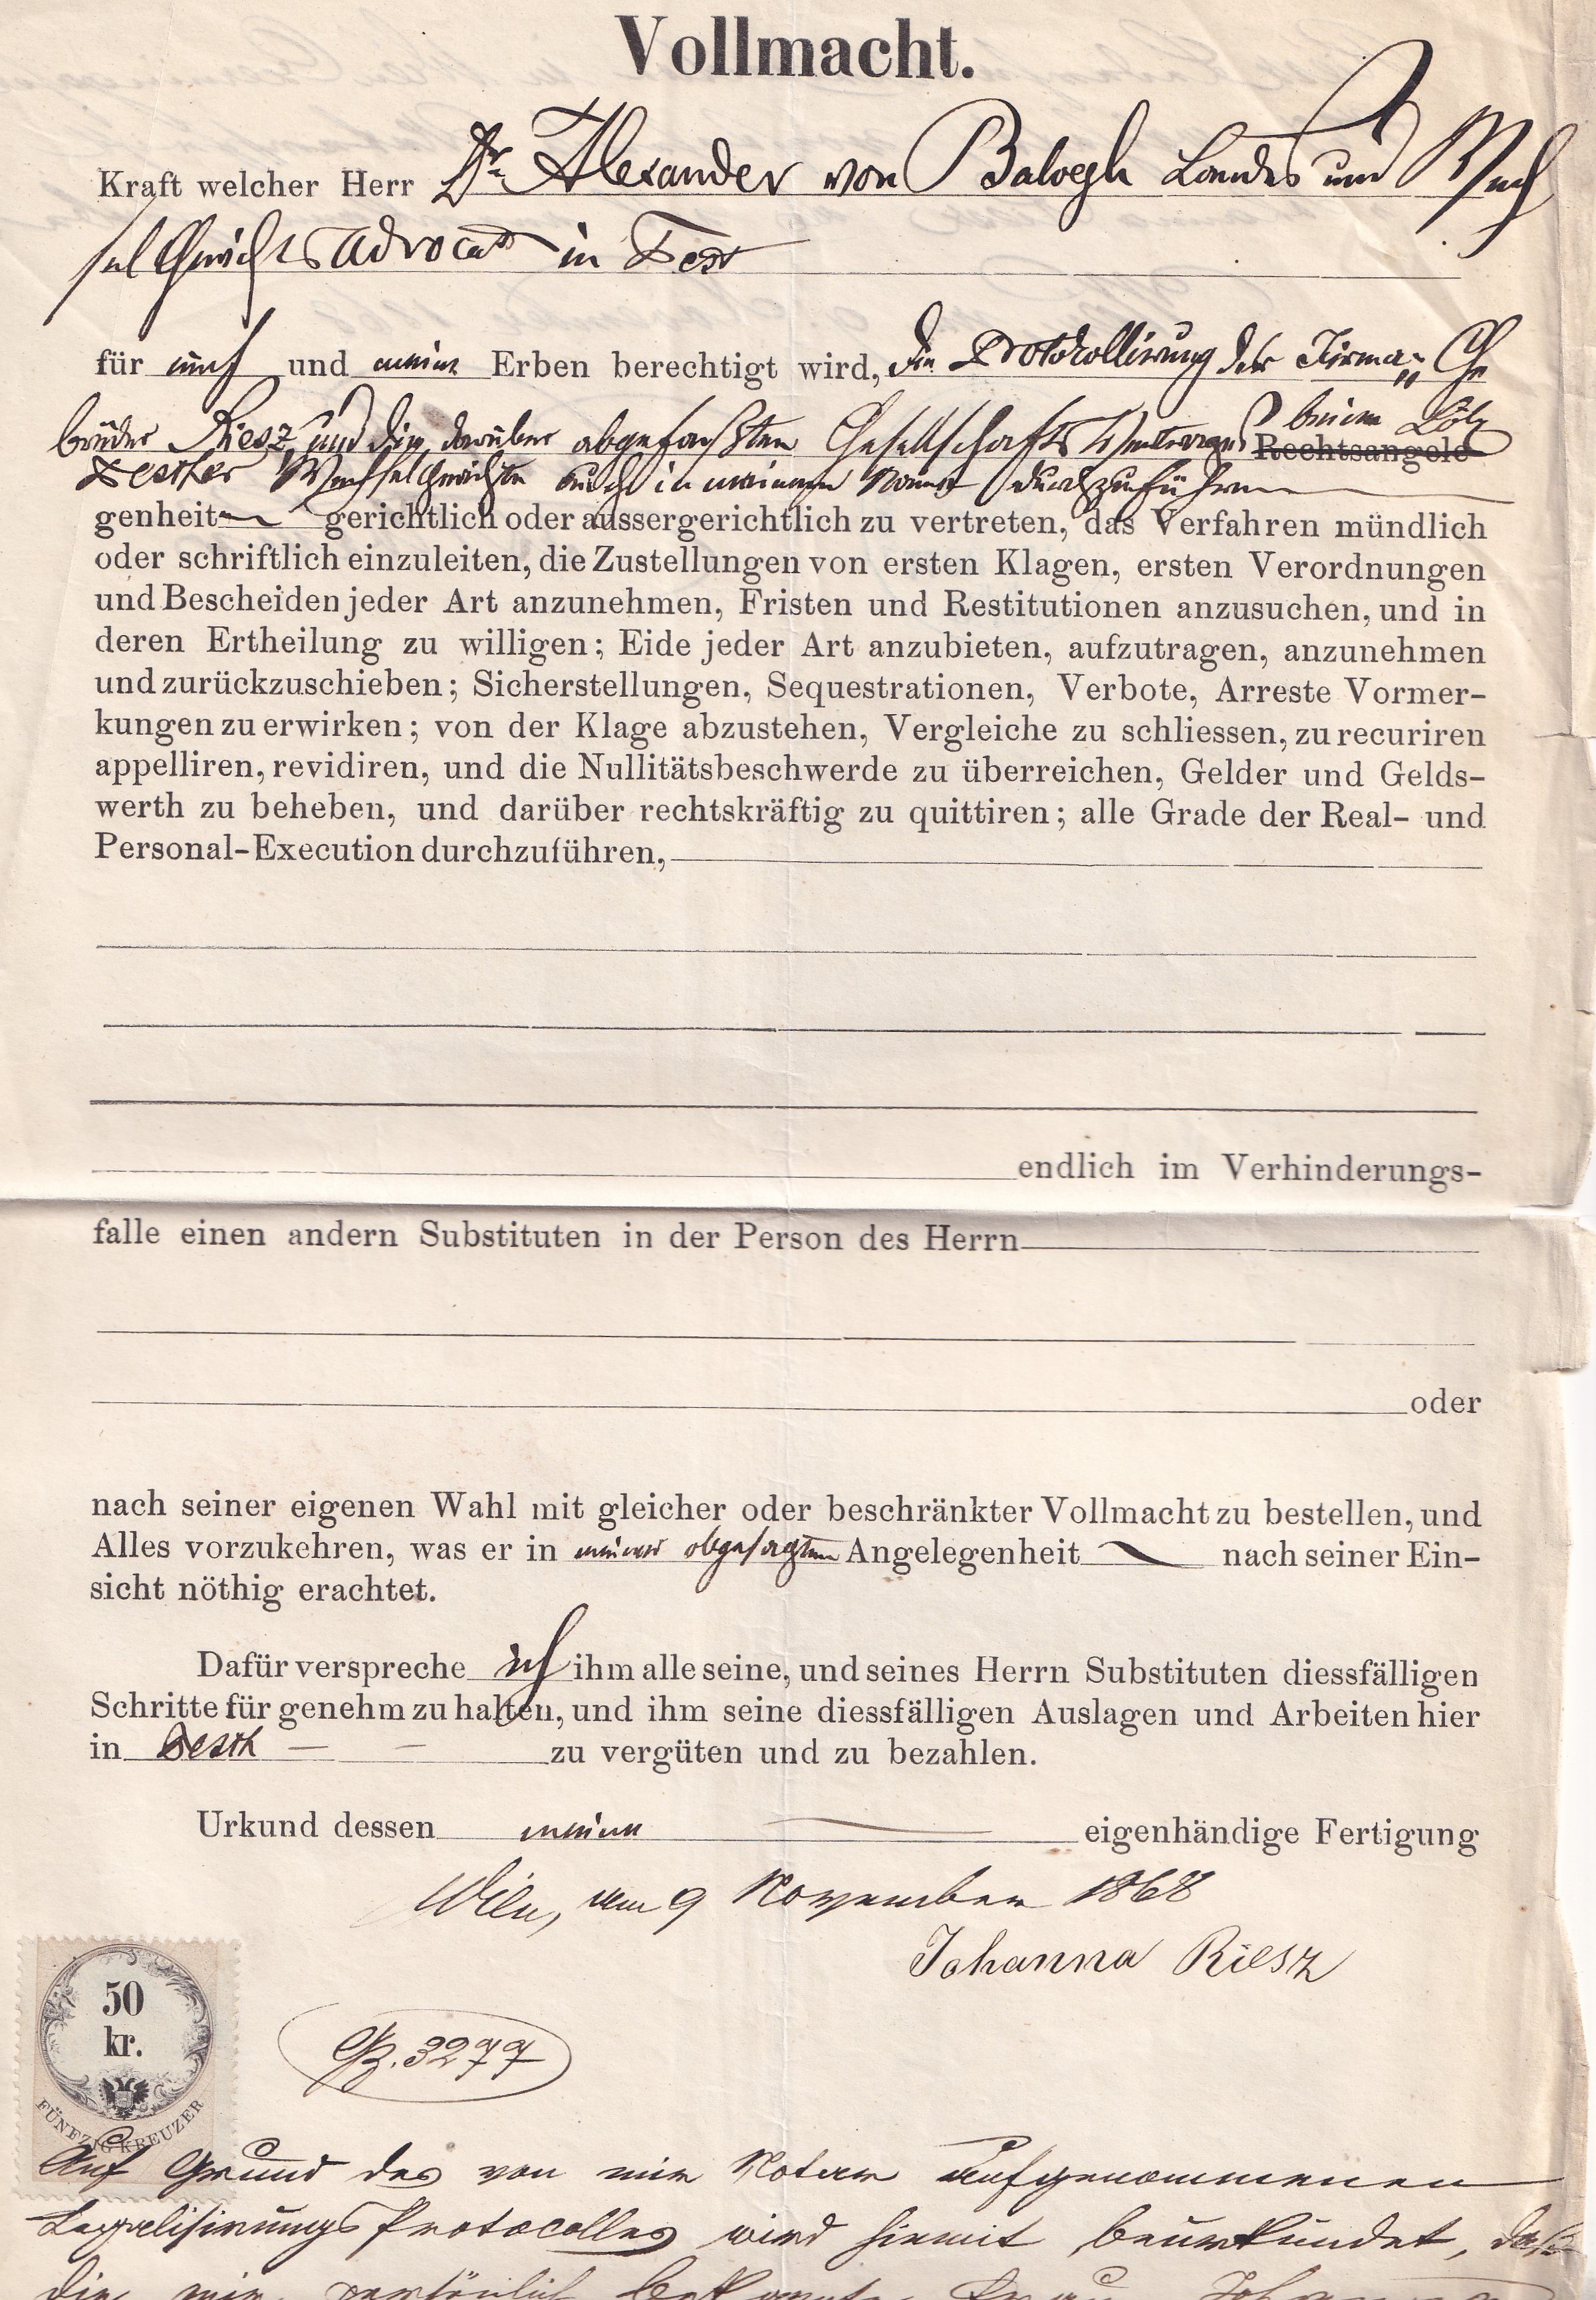 Vollmacht.
Kraft welcher Herr Dr. Alexander von Balogh Landes und Wech
selgerichts Advocat in Pest
für mich und meine Erben berechtigt wird, die Protokollirung der Firma: „Ge
brüder Riesz" und die darüber abgefaßten Gesellschafts Vertrages beim Löbl
Rechtsangele
Pesther Wechselgerichte auch in meinem Namen durchzuführen
genheiten gerichtlich oder aussergerichtlich zu vertreten, das Verfahren mündlich
oder schriftlich einzuleiten, die Zustellungen von ersten Klagen, ersten Verordnungen
und Bescheiden jeder Art anzunehmen, Fristen und Restitutionen anzusuchen, und in
deren Ertheilung zu willigen; Eide jeder Art anzubieten, aufzutragen, anzunehmen
und zurückzuschieben; Sicherstellungen, Sequestrationen, Verbote, Arreste Vormer-
kungen zu erwirken; von der Klage abzustehen, Vergleiche zu schliessen, zu recuriren
appelliren, revidiren, und die Nullitätsbeschwerde zu überreichen, Gelder und Gelds-
werth zu beheben, und darüber rechtskräftig zu quittiren; alle Grade der Real- und
Personal-Execution durchzuführen,
endlich im Verhinderungs-
falle einen andern Substituten in der Person des Herrn
oder
nach seiner eigenen Wahl mit gleicher oder beschränkter Vollmacht zu bestellen, und
Alles vorzukehren, was er in meiner obgesagten Angelegenheit nach seiner Ein-
sicht nöthig erachtet.
Dafür verspreche ich ihm alle seine, und seines Herrn Substituten diessfälligen
Schritte für genehm zu halten, und ihm seine diessfälligen Auslagen und Arbeiten hier
in Pesth zu vergüten und zu bezahlen.
Urkund dessen meine eigenhändige Fertigung
Wien, am 9 November 1868
Johanna Riesz
50
kr.
FÜNFZIG KREUZER
GZ. 3277
Auf Grund des von mir Notar aufgenommenen
Legalisirungs Protocolles wird hiemit beurkundet, daß
die mir persönlich bekannte Frau Johanna